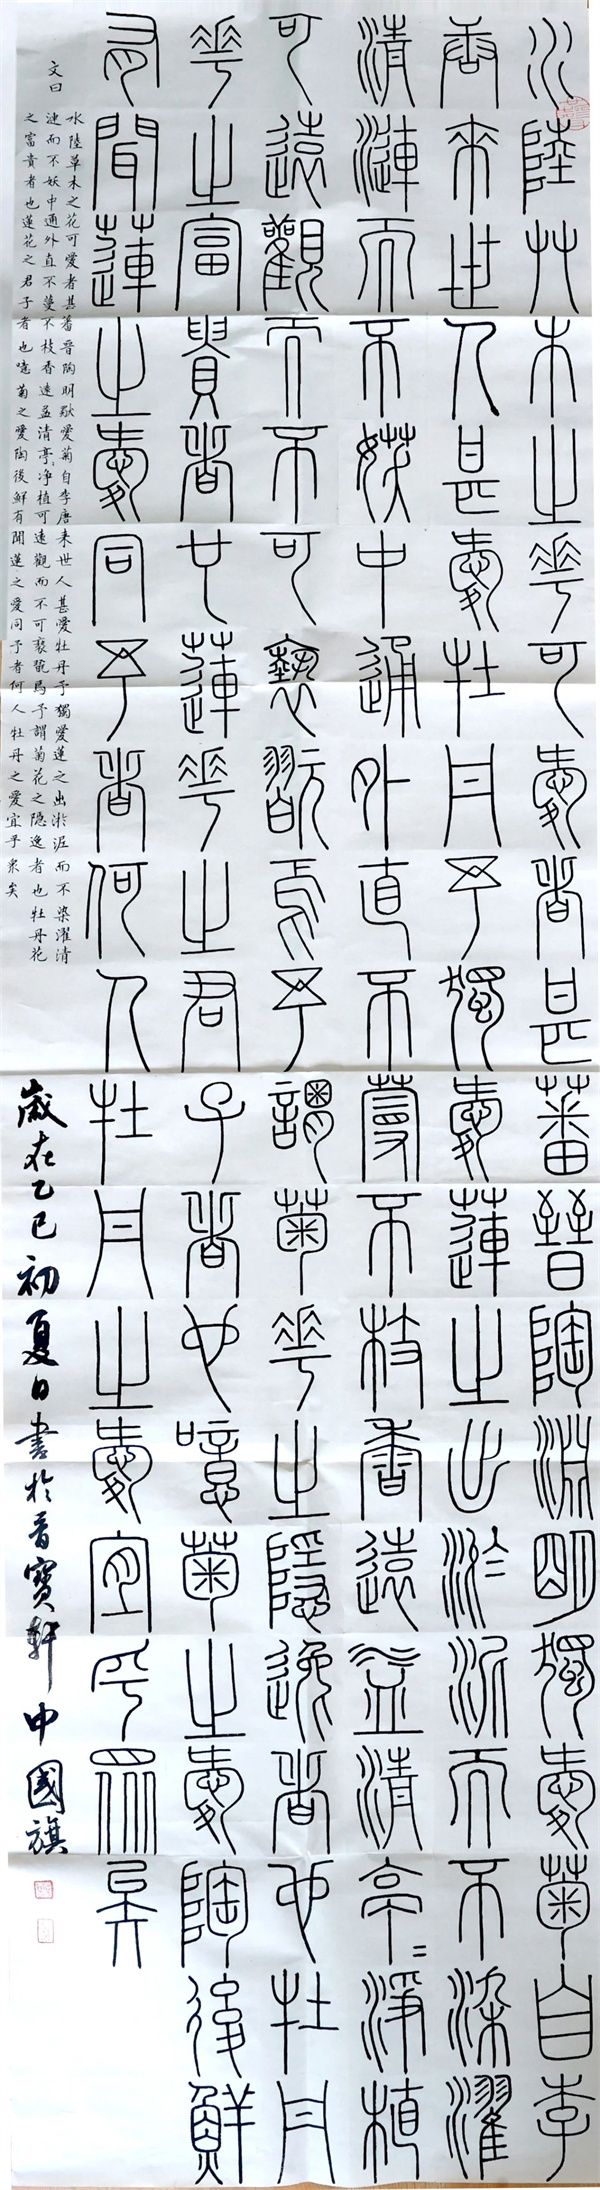 水陸艸木之華可愛者甚蕃晉陶淵明獨愛菊自李
唐來世人甚愛牡丹予獨愛蓮之出淤泥而不染濯
清漣而不妖中通外直不蔓不枝香遠益清亭=淨植
可遠觀而不可褻翫焉予謂菊華之隱逸者也牡丹
華之富貴者也蓮華之君子者也噫菊之愛陶後鮮
有聞蓮之愛同予者何人牡丹之愛宜乎眾矣
文曰
水陸草木之花可愛者甚蕃晉陶明愛菊自李唐來世人甚愛牡丹予獨愛蓮之出淤泥而不染濯清
漣而不妖中通外直不蔓不枝香遠益清亭淨植可遠觀而不可褻翫焉予謂菊花之隱逸者也牡丹花
之富貴者也蓮花之君子者也噫菊之愛陶後鮮有聞蓮之愛同予者何人牡丹之愛宜乎眾矣
歲在乙巳初夏日書於寶軒中國旗